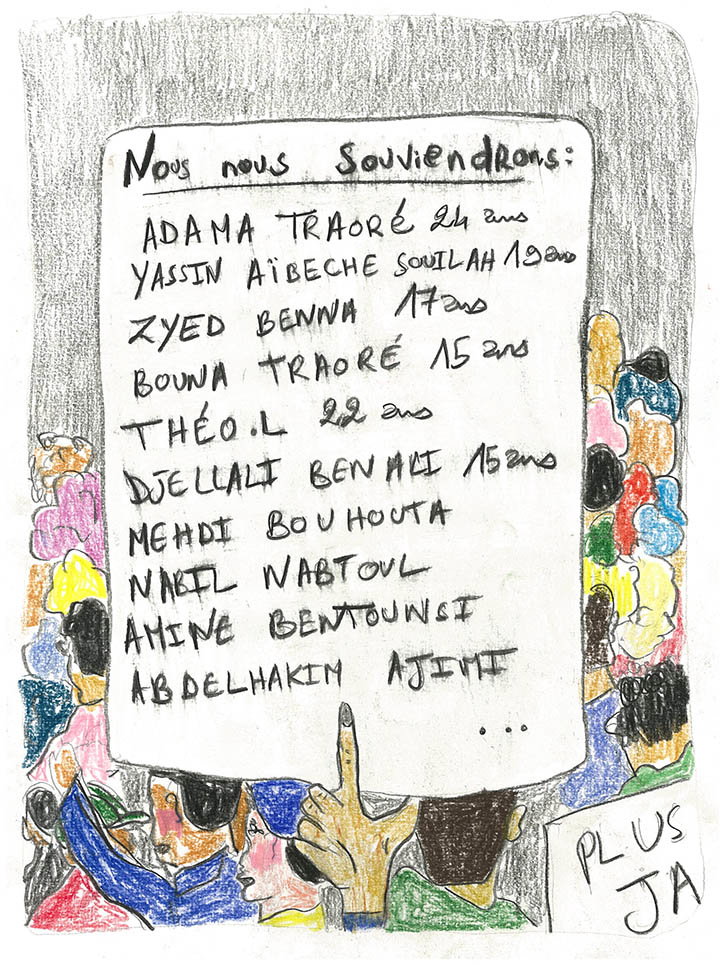 Nous nous souviendrons:
ADAMA TRAORÉ 24 ans
YASSIN AÏBECHE SOUILAH 19 ans
ZYED BENNA 17 ans
BOUNA TRAORÉ 15 ans
THÉO.L 22 ans
DJELLALI BEN ALI 15 ans
MEHDI BOUHOUTA
NABIL NABTOUL
AMINE BENTOUNSI
ABDELHAKIM AJIMI
...
PLUS
JA